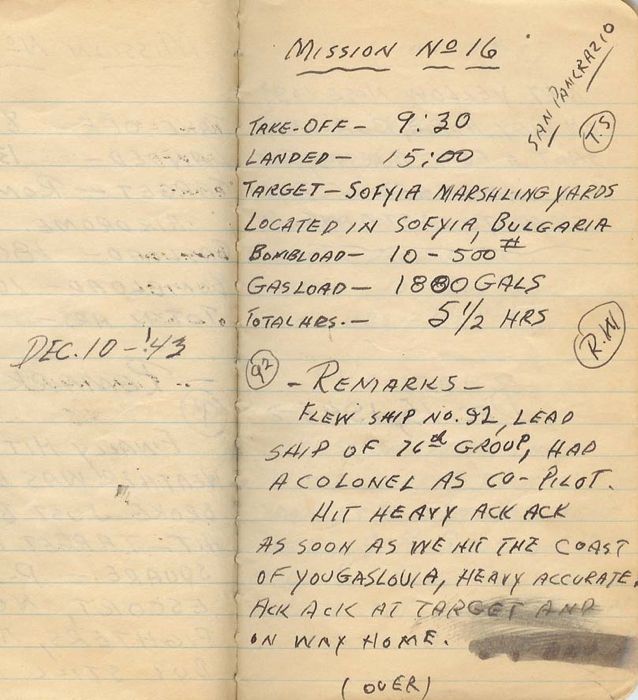 MISSION No 16
SAN PANCRAZIO
T.S
TAKE-OFF - 9:30
LANDED - 15:00
TARGET - SOFYIA MARSHLING YARDS
LOCATED IN SOFYIA, BULGARIA
BOMBLOAD - 10 - 500#
GASLOAD - 1800 GALS
TOTAL HRS. - 5 1/2 HRS
R.W
DEC. 10 - '43
92
- REMARKS -
FLEW SHIP NO. 92, LEAD
SHIP OF 76th GROUP, HAD
A COLONEL AS CO-PILOT.
HIT HEAVY ACK ACK
AS SOON AS WE HIT THE COAST
OF YOUGASLOVIA, HEAVY ACCURATE
ACK ACK AT TARGET AND
ON WAY HOME.
(OVER)